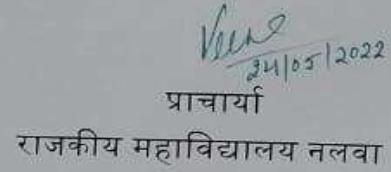 Veena
24/05/2022
प्राचार्या
राजकीय महाविद्यालय नलवा